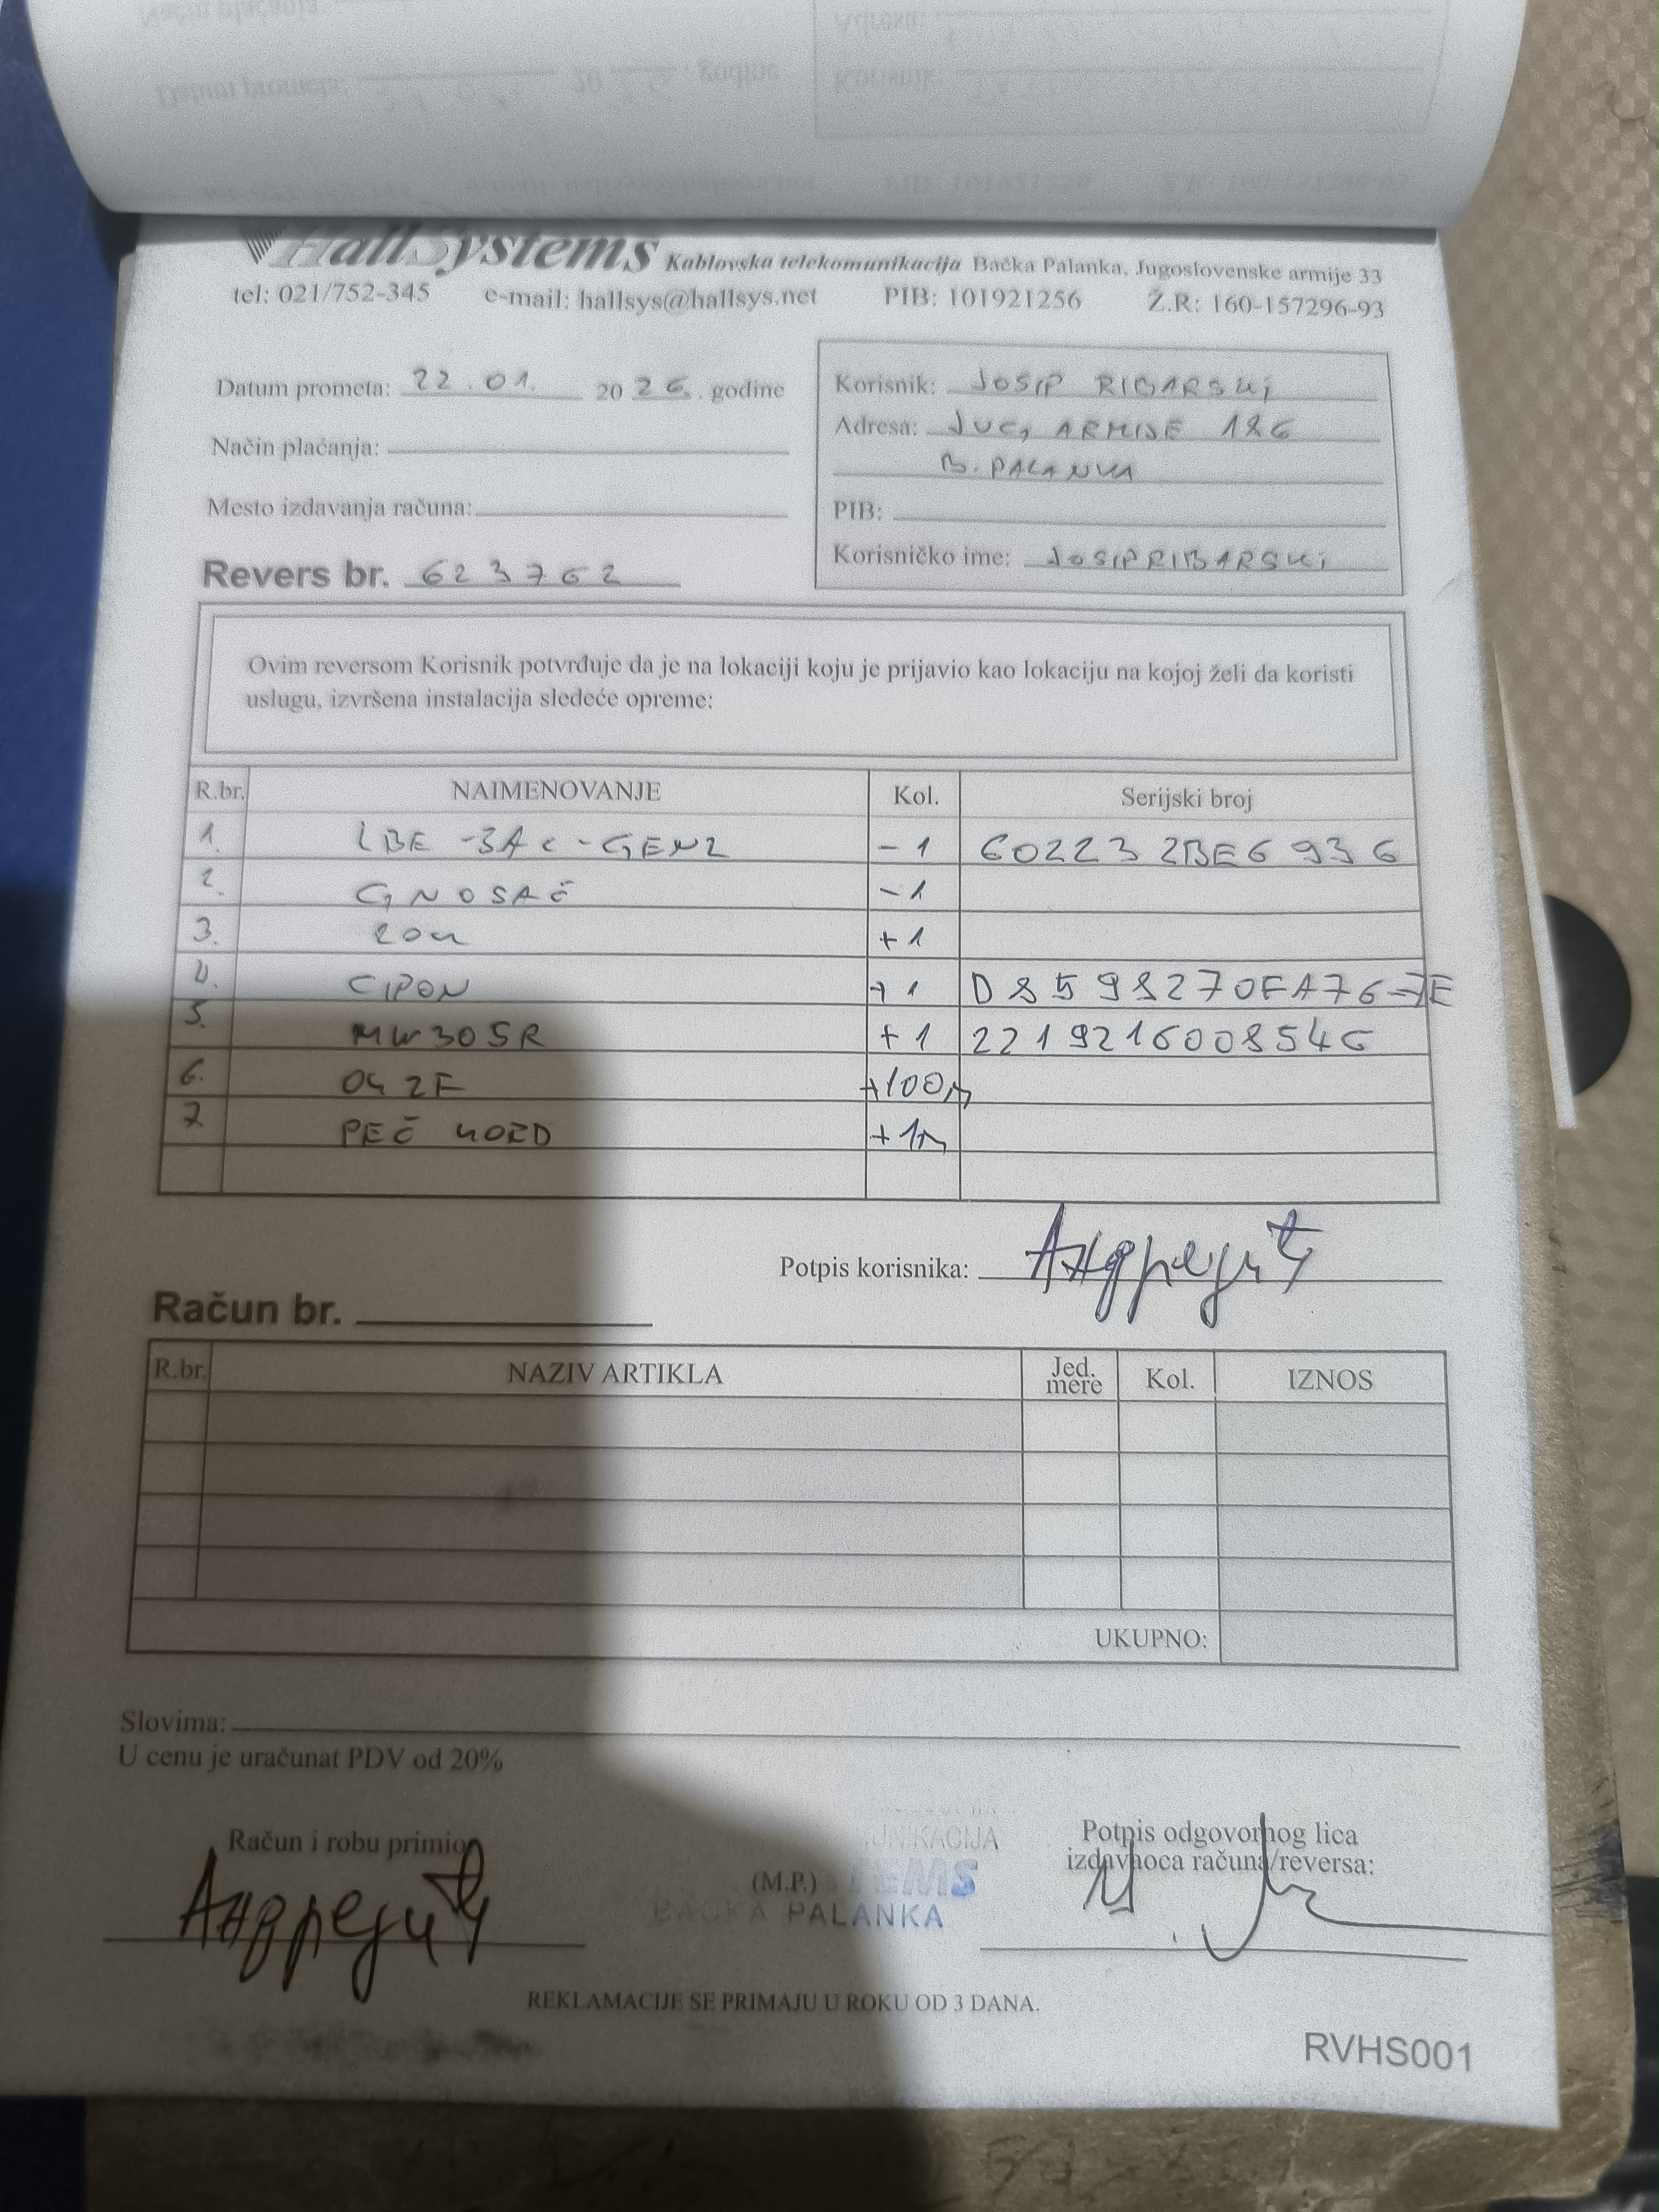 HallSystems Kablovska telekomunikacija Bačka Palanka, Jugoslovenske armije 33
tel: 021/752-345 e-mail: hallsys@hallsys.net PIB: 101921256 Ž.R: 160-157296-93
Datum prometa: 22.01. 2026. godine
Način plaćanja:
Mesto izdavanja računa:
Revers br. 623762
Korisnik: JOSIP RIBARSKI
Adresa: JUG, ARMIJE 186
B. PALANKA
PIB:
Korisničko ime: JOSIPRIBARSKI
Ovim reversom Korisnik potvrđuje da je na lokaciji koju je prijavio kao lokaciju na kojoj želi da koristi
uslugu, izvršena instalacija sledeće opreme:
R.br. NAIMENOVANJE Kol. Serijski broj
1. LBE -5AC-GEN2 -1 602232BE6936
2. G NOSAČ -1
3. +1
4. CIPON +1 D8598270FA767E
5. MW305R +1 2219216008546
6. 042F +100m
7. PEČ KORD +1m
Potpis korisnika: Андрејић
Račun br.
R.br. NAZIV ARTIKLA Jed. mere Kol. IZNOS
UKUPNO:
Slovima:
U cenu je uračunat PDV od 20%
Račun i robu primio
Андрејић
(M.P.)
BAČKA PALANKA
Potpis odgovornog lica
izdavaoca računa/reversa:
REKLAMACIJE SE PRIMAJU U ROKU OD 3 DANA.
RVHS001